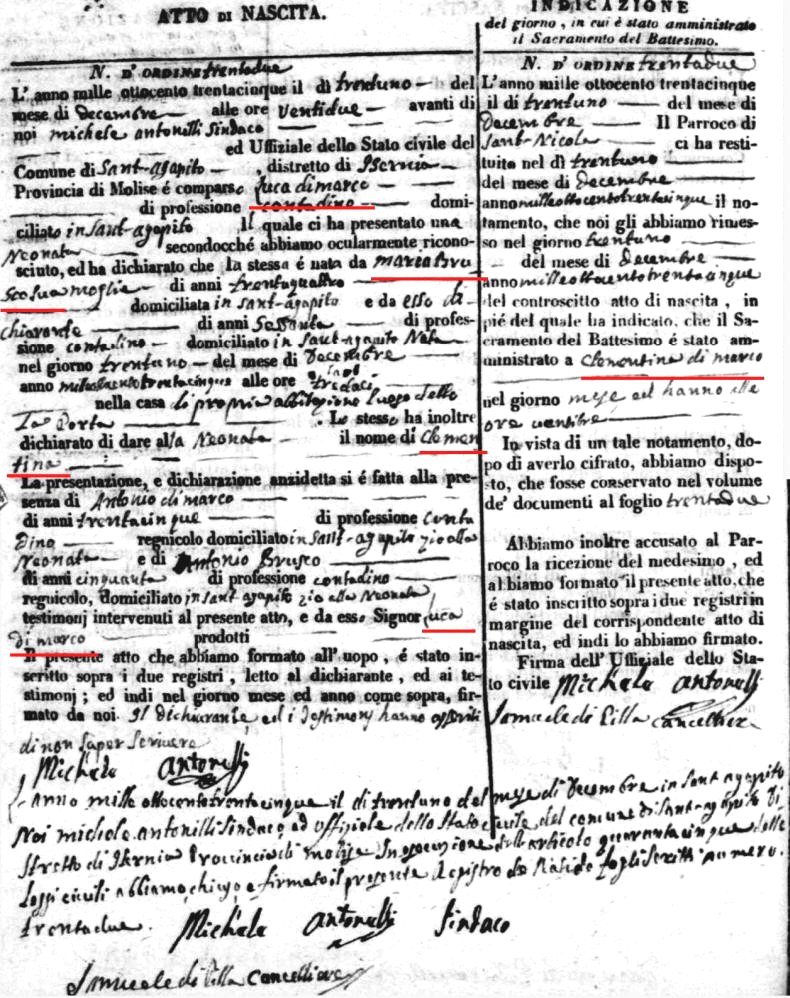 ATTO DI NASCITA.
N. D' ORDINE trentadue
L' anno mille ottocento trentacinque il dì trentuno del
mese di decembre alle ore ventidue avanti di
noi michele antonilli Sindaco
ed Uffiziale dello Stato civile del
Comune di Sant-agapito distretto di Isernia
Provincia di Molise é comparso luca di marco
di professione contadino domi-
ciliato in sant-agapito Il quale ci ha presentato una
Neonata secondocché abbiamo ocularmente ricono-
sciuto, ed ha dichiarato che la stessa é nata da maria Bru
sco sua moglie di anni trentaquattro
domiciliata in sant-agapito e da esso di-
chiarante di anni Sessanta di profes-
sione contadino domiciliato in Sant-agapito Nata
nel giorno trentuno del mese di Decembre
anno milleottocentotrentacinque alle ore tredaci
nella casa di propria abbitazione luogo detto
La Porta Lo stesso ha inoltre
dichiarato di dare alla Neonata il nome di Clemen
tina
La presentazione, e dichiarazione anzidetta si é fatta alla pre-
senza di Antonio di marco
di anni trentacinque di professione conta
dino regnicolo domiciliato in sant-agapito zio alla
Neonata e di Antonio Brusco
di anni cinquanta di professione contadino
regnicolo, domiciliato in sant-agapito zio alla Neonata
testimonj intervenuti al presente atto, e da esso Signor luca
di marco prodotti
Il presente atto che abbiamo formato all' uopo, é stato in-
scritto sopra i due registri, letto al dichiarante, ed ai te-
stimonj; ed indi nel giorno mese ed anno come sopra, fir-
mato da noi. Il dichiarante ed i testimonj hanno asseriti
di non saper Scrivere
Michele antonelli
INDICAZIONE
del giorno, in cui è stato amministrato
il Sacramento del Battesimo.
N. D' ORDINE trentadue
L' anno mille ottocento trentacinque
il dì trentuno del mese di
Decembre Il Parroco di
Sant-Nicola ci ha resti-
tuito nel dì trentuno
del mese di decembre
anno milleottocentotrentacinque il no-
tamento, che noi gli abbiamo rimes-
so nel giorno trentuno
del mese di decembre
anno milleottocentotrentacinque
del controscitto atto di nascita, in
pié del quale ha indicato, che il Sa-
cramento del Battesimo é stato am-
ministrato a Clementina di marco
nel giorno mese ed hanno alle
ore ventitre
In vista di un tale notamento, do-
po di averlo cifrato, abbiamo dispo-
sto, che fosse conservato nel volume
de' documenti al foglio trentadue
Abbiamo inoltre accusato al Par-
roco la ricezione del medesimo, ed
abbiamo formato il presente atto, che
é stato inscritto sopra i due registri in
margine del corrispondente atto di
nascita, ed indi lo abbiamo firmato.
Firma dell' Uffiziale dello Sta-
to civile Michele antonelli
Samuele di Lilla cancelliere
Anno mille ottocentotrentacinque il dì trentuno del mese di Decembre in sant agapito
Noi michele antonilli Sindaco ed offiziale dello Stato civile del comune di Sant-agapito Di
stretto di Isernia Provincia di molise In esecuzione dell articolo quarantacinque delle
Leggi civili abbiamo chiuso e firmato il presente Registro de Nati di fogli Scritti numero
trentadue. Michele antonelli Sindaco
Samuele di Lilla Cancelliere